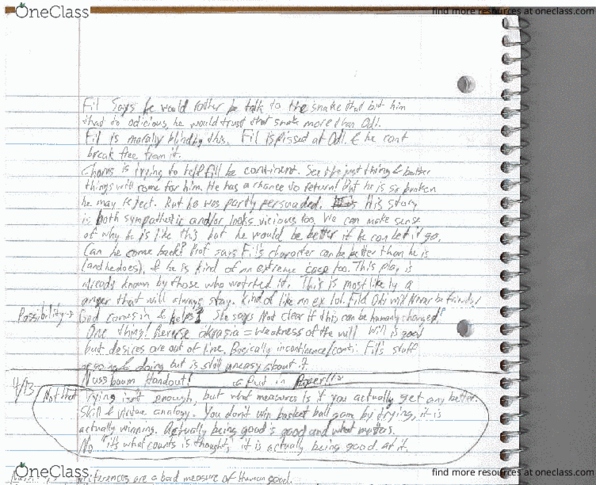 OneClass
find more resources at oneclass.com
Fil Says he would rather be talk to the snake that bit him
than to odicious, he would trust that snake more than Odi.
Fil is morally blinding this. Fil is pissed at Odi. & he cant
break free from it.
Chorus is trying to tell fill be continent. See the just thing & better
things will come for him. He has a chance to return! But he is so broken
he may reject. But he was partly persuaded. His story
is both sympathetic and/or looks vicious too. We can make sense
of why he is like this but he would be better if he can let it go.
Can he come back? Nat says Fil's character can be better than he is
(and he does), & he is kind of an extreme case too. This play is
already known by those who watched it. This is most likely a
anger that will always stay. Kind of like an ex lol. Fil & Odi will Never be friends!
Possibility → God comes in & helps? She says Not clear if this can be humanly changed"
One thing! Reverse akrasia = weakness of the will will is good
but desires are out of line. Basically incontinence/conti. Fil's staff
doing but is still uneasy about it.
Nussbaum Handout! Put in Paper!!
4/13
Trying isn't enough, but what measures is if you actually get any better.
Skill & virtue analogy. You don't win basket ball game by trying, it is
actually winning. Actually being good is good and what matters.
No "it's what counts is thought," it is actually being good at it.
are a bad measure of Human good.
OneClass
find more resources at oneclass.com